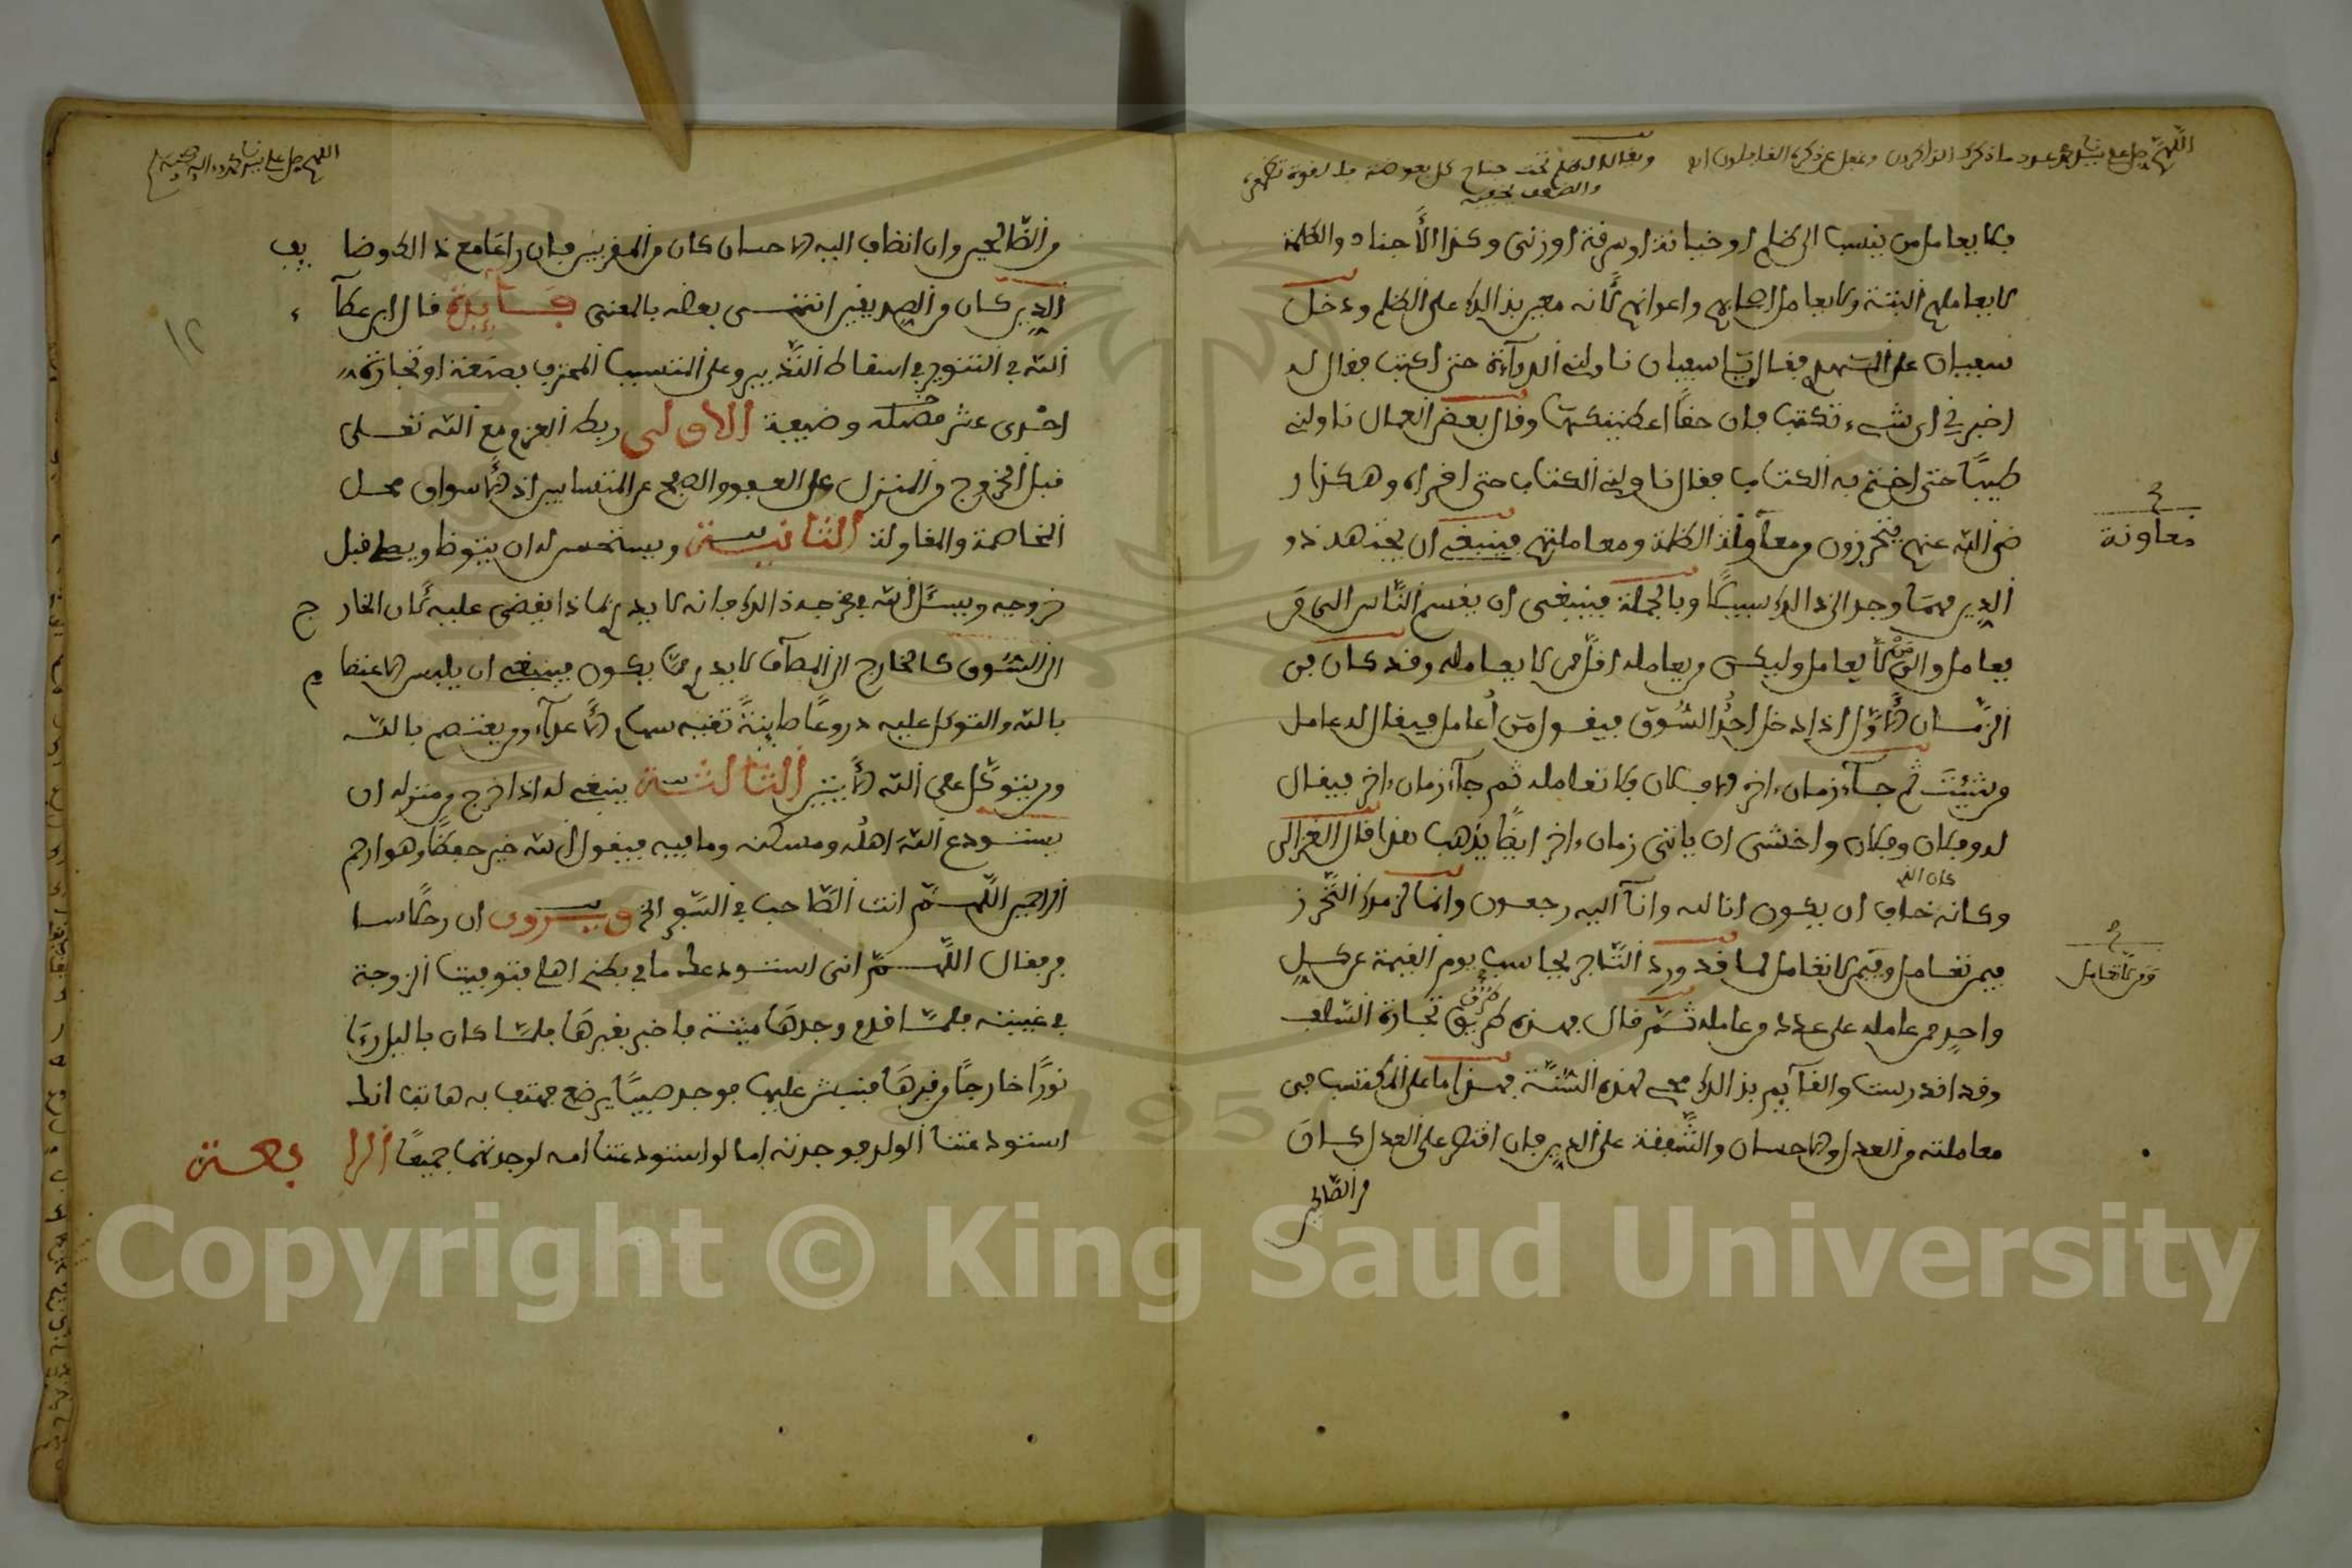 اللهم صل على نبينا محمد عدد ما ذكرك الذاكرون وغفل عن ذكره الغافلون
ويقال ان الظلم تحت جناح كل بعوضة
فلا يعامل من ينسب الى ظلم او خيانة او سرقة او زنى وكذا الأجناد والظلمة
لا يعاملهم البتة ولا يعامل اصحابهم واعوانهم لأنه معين بذالك على الظلم ودخل
سفيان على المهدي فقال يا سفيان ناولني الدواة حتى اكتب فقال له
اخبرني اي شيء تكتب فان حقا اعطيتكها وقال بعض العمال ناولني
طينا حتى اختم به الكتاب فقال ناولني الكتاب حتى اقراه وهكذا ر
ضي الله عنهم يتحرزون من معاونة الظلمة ومعاملتهم فينبغي ان يجتهد ذو
معاونة
الدين مهما وجد الى ذالك سبيلا وبالجملة فينبغي ان يقسم الناس الى من
يعامل والى من لا يعامل وليكن من يعامله اقل ممن لا يعامله وقد كان من
الزمان الأول اذا دخل احد السوق فيقول من أعامل فيقال له عامل
من شئت ثم جاء زمان اخر الا فلان فلا تعامله ثم جاء زمان اخر فيقال
له فلان وفلان واخشى ان ياتي زمان اخر ايضا يذهب هذا قال الغزالي
وكانه خاف كان الذي ان يكون انا لله وانا اليه رجعون وانما لزمك التحرز
فيمن تعامل وفيمن لا تعامل لما قد ورد التاجر يحاسب يوم القيمة عن كل
ومن لا تعامل
واحد ممن عامله على عدد من عامله ثم قال فهذه طريق تجارة السلف
وقد اندرست والقآيم بذالك محي لهذه السنة فهذا ما على المكتسب في
معاملته من العدل والاحسان والشفقة على الدين فان اقتصر على العدل كان
من الصالحين
اللهم صل على نبينا محمد واله وصحبه وسلم
١٢
من الصالحين وان انضاف اليه الاحسان كان من المقربين فان راعا مع ذالك وضايف
الدين كان من الصديقين انتهى بعضه بالمعنى فآيدة قال ابن عطآء
الله في التنوير في اسقاط التدبير وعلى المتسبب المحترف بصنعة او تجارة
احدى عشر خصلة وضيفة الاولى ربط العزم مع الله تعلى
قبل الخروج من المنزل على العفو والصفح عن المتسابين اذ الأسواق محل
المخاصمة والمقاولة الثانية ويستحسن له ان يتوظا ويصلي قبل
خروجه ويسئل الله في مخرجه ذالك فانه لا يدري ماذا يقضى عليه لأن الخارج
الى السوق كالخارج الى المصآف لا يدري ما يكون فينبغي ان يلبس الاعتصام
بالله والتوكل عليه دروعا صاينة تقيه سهام الأعداء ومن يعتصم بالله
ومن يتوكل على الله الأيتين الثالثة ينبغي له اذا خرج من منزله ان
يستودع الله اهله ومسكنه وما فيه فيقول الله خير حفظا وهو ارحم
الراحمين اللهم انت الصاحب في السفر الخ ويروى ان رجلا سا
فر فقال اللهم اني استودعك ما في بطن اهلي فتوفيت الزوجة
في غيبته فلما قدم وجدها ميتة فاخبر بقبرها فلما كان باليل رءا
نورا خارجا من قبرها فنبش عليها فوجد صبيا يرضع فهتف به هاتف انك
استودعتنا الولد فوجدته اما لو استودعتنا امه لوجدتهما جميعا الرابعة
Copyright © King Saud University
1957